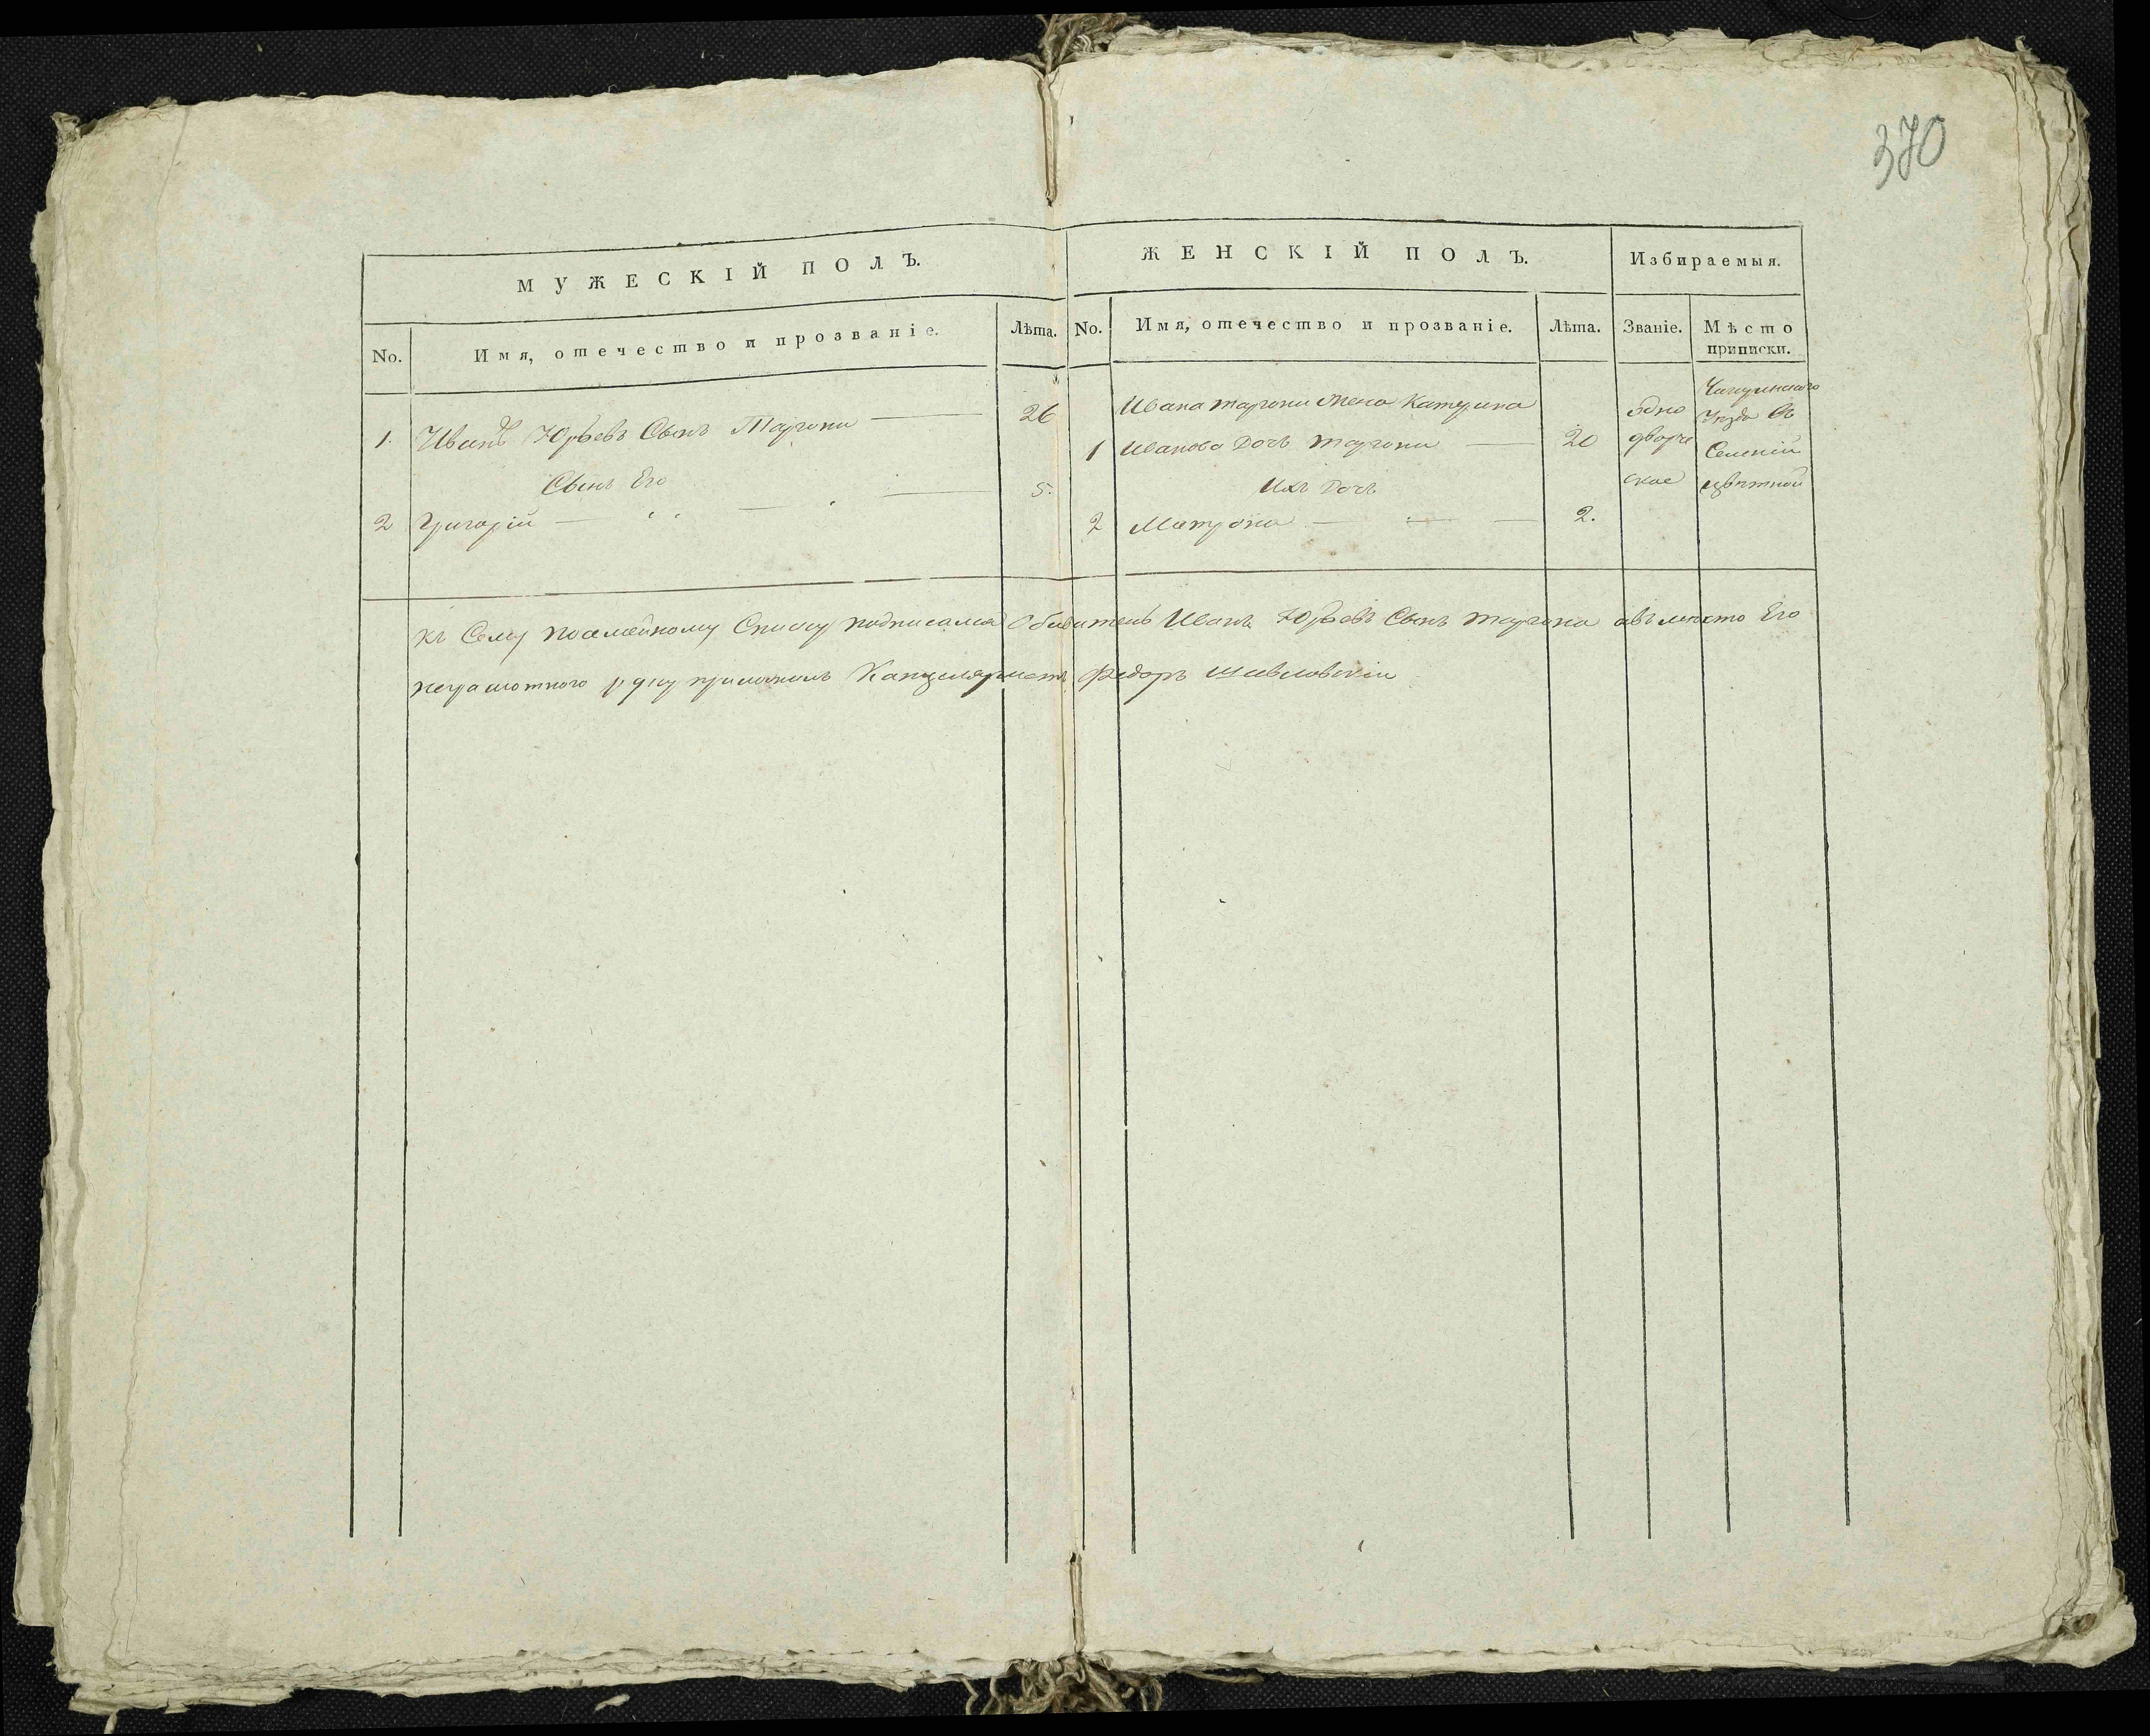 370
МУЖЕСКІЙ ПОЛЪ.
No.
Имя, отечество и прозваніе.
Лѣта.
1. Иванъ Юрьевъ Сынъ Таргони 26
Сынъ Его 5.
2 Григорій
ЖЕНСКІЙ ПОЛЪ.
No.
Имя, отечество и прозваніе.
Лѣта.
Ивана таргони жена Катерина
1 Иванова Дочь таргони 20
Ихъ Дочь
2 Матрона 2.
Избираемыя.
Званіе.
Мѣсто
приписки.
одно
дворче
ское
Уезда Въ
Селеніи
къ Сему посемейному Списку подписался Обыватель Иванъ Юрьевъ Сынъ таргона авъместо Его
неграмотного руку приложилъ Канцеляристъ Федоръ